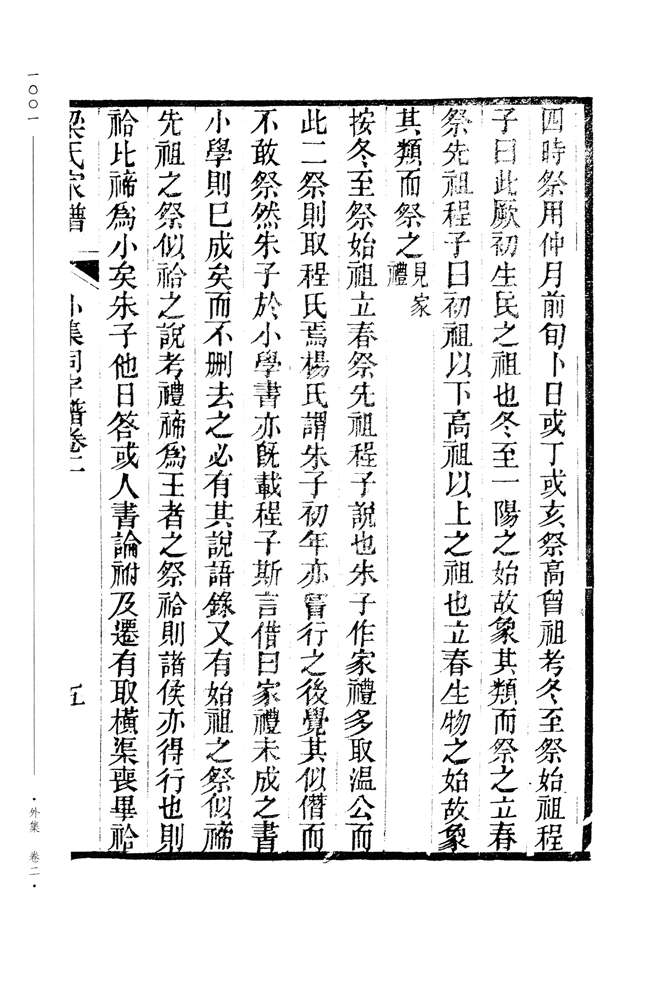 四時祭用仲月前旬卜日或丁或亥祭高曾祖考冬至祭始祖程
子曰此厥初生民之祖也冬至一陽之始故象其類而祭之立春
祭先祖程子曰初祖以下高祖以上之祖也立春生物之始故象
其類而祭之見家禮
按冬至祭始祖立春祭先祖程子說也朱子作家禮多取温公而
此二祭則取程氏焉楊氏謂朱子初年亦嘗行之後覺其似僭而
不敢祭然朱子於小學書亦既載程子斯言借曰家禮未成之書
小學則已成矣而不删去之必有其說語錄又有始祖之祭似禘
先祖之祭似祫之說考禮禘爲王者之祭祫則諸侯亦得行也則
祫比禘爲小矣朱子他日答或人書論祔及遷有取橫渠喪畢祫
梁氏家譜 外集祠宇譜卷二 五
一〇〇一 ·外集 卷二·